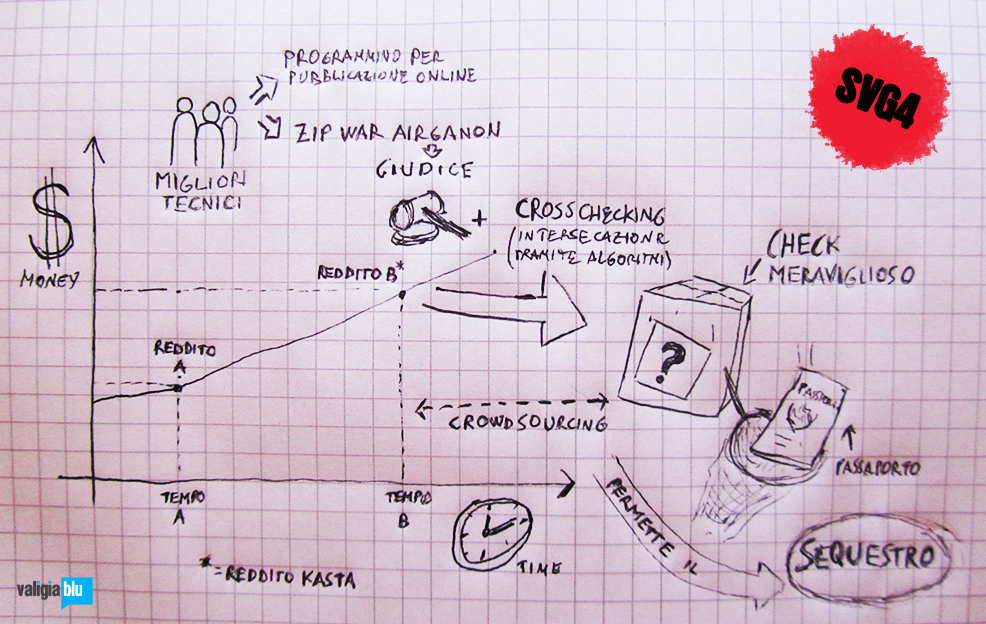 PROGRAMMINO PER
PUBBLICAZIONE ONLINE
SVG4
ZIP WAR AIRGANON
MIGLIORI
TECNICI
GIUDICE
$
MONEY
+
CROSSCHECKING
(INTERSECAZIONE
TRAMITE ALGORITMI)
CHECK
MERAVIGLIOSO
REDDITO B*
REDDITO
A
?
PASSAPORTO
CROWDSOURCING
PASSAPORTO
TEMPO
A
TEMPO
B
TIME
PERMETTE IL
SEQUESTRO
*=REDDITO KASTA
valigia blu